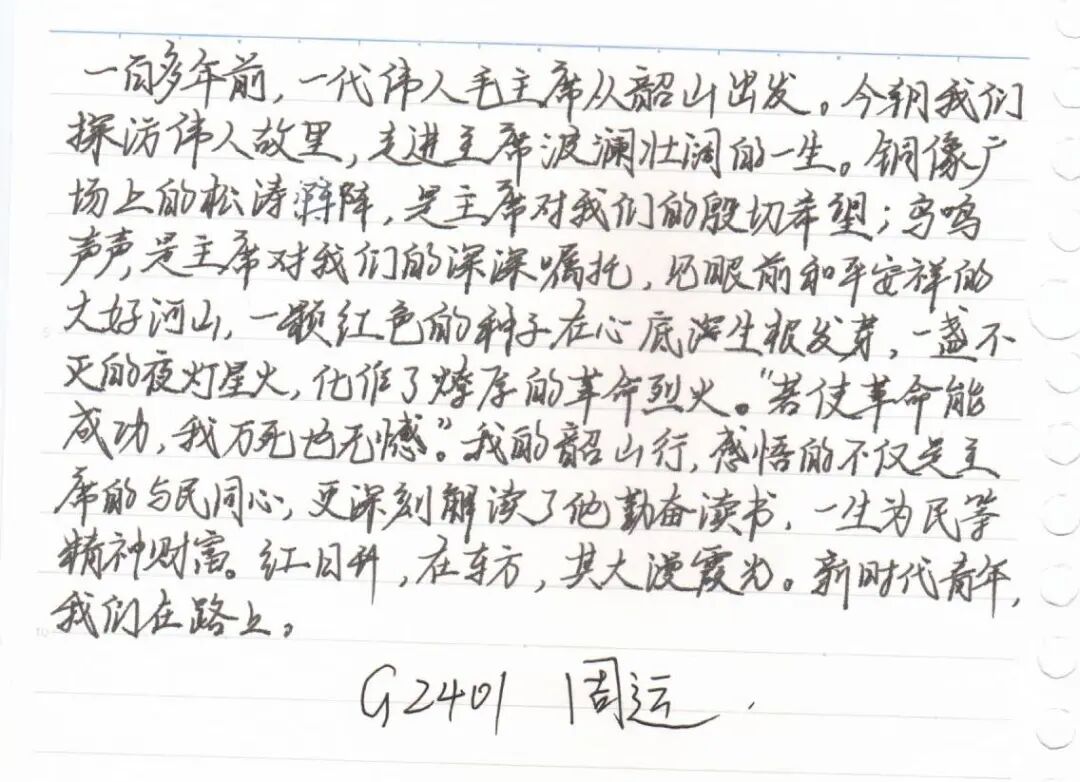 一百多年前，一代伟人毛主席从韶山出发。今朝我们
探访伟人故里，走进主席波澜壮阔的一生。铜像广
场上的松涛阵阵，是主席对我们的殷切希望；鸟鸣
声声，是主席对我们的深深嘱托，见眼前和平安祥的
大好河山，一颗红色的种子在心底深生根发芽，一盏不
灭的夜灯星火，化作了燎原的革命烈火。“若使革命能
成功，我万死也无憾”。我的韶山行，感悟的不仅是主
席的与民同心，更深刻解读了他勤奋读书，一生为民等
精神财富。红日升，在东方，其大漫霞光。新时代青年，
我们在路上。
G2401 周运